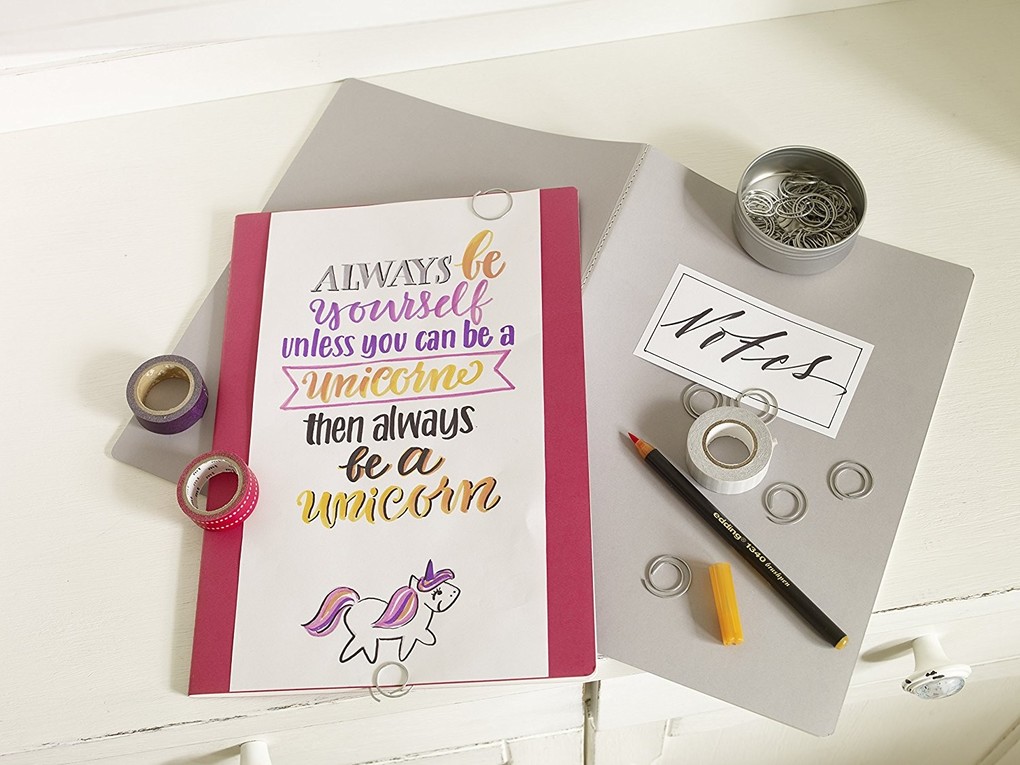 ALWAYS be
yourself
unless you can be a
unicorn
then always
be a
unicorn
Notes
edding® 1340 brushpen